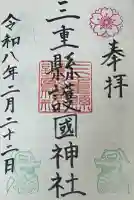 奉拝
三重縣護國神社
令和八年二月二十二日